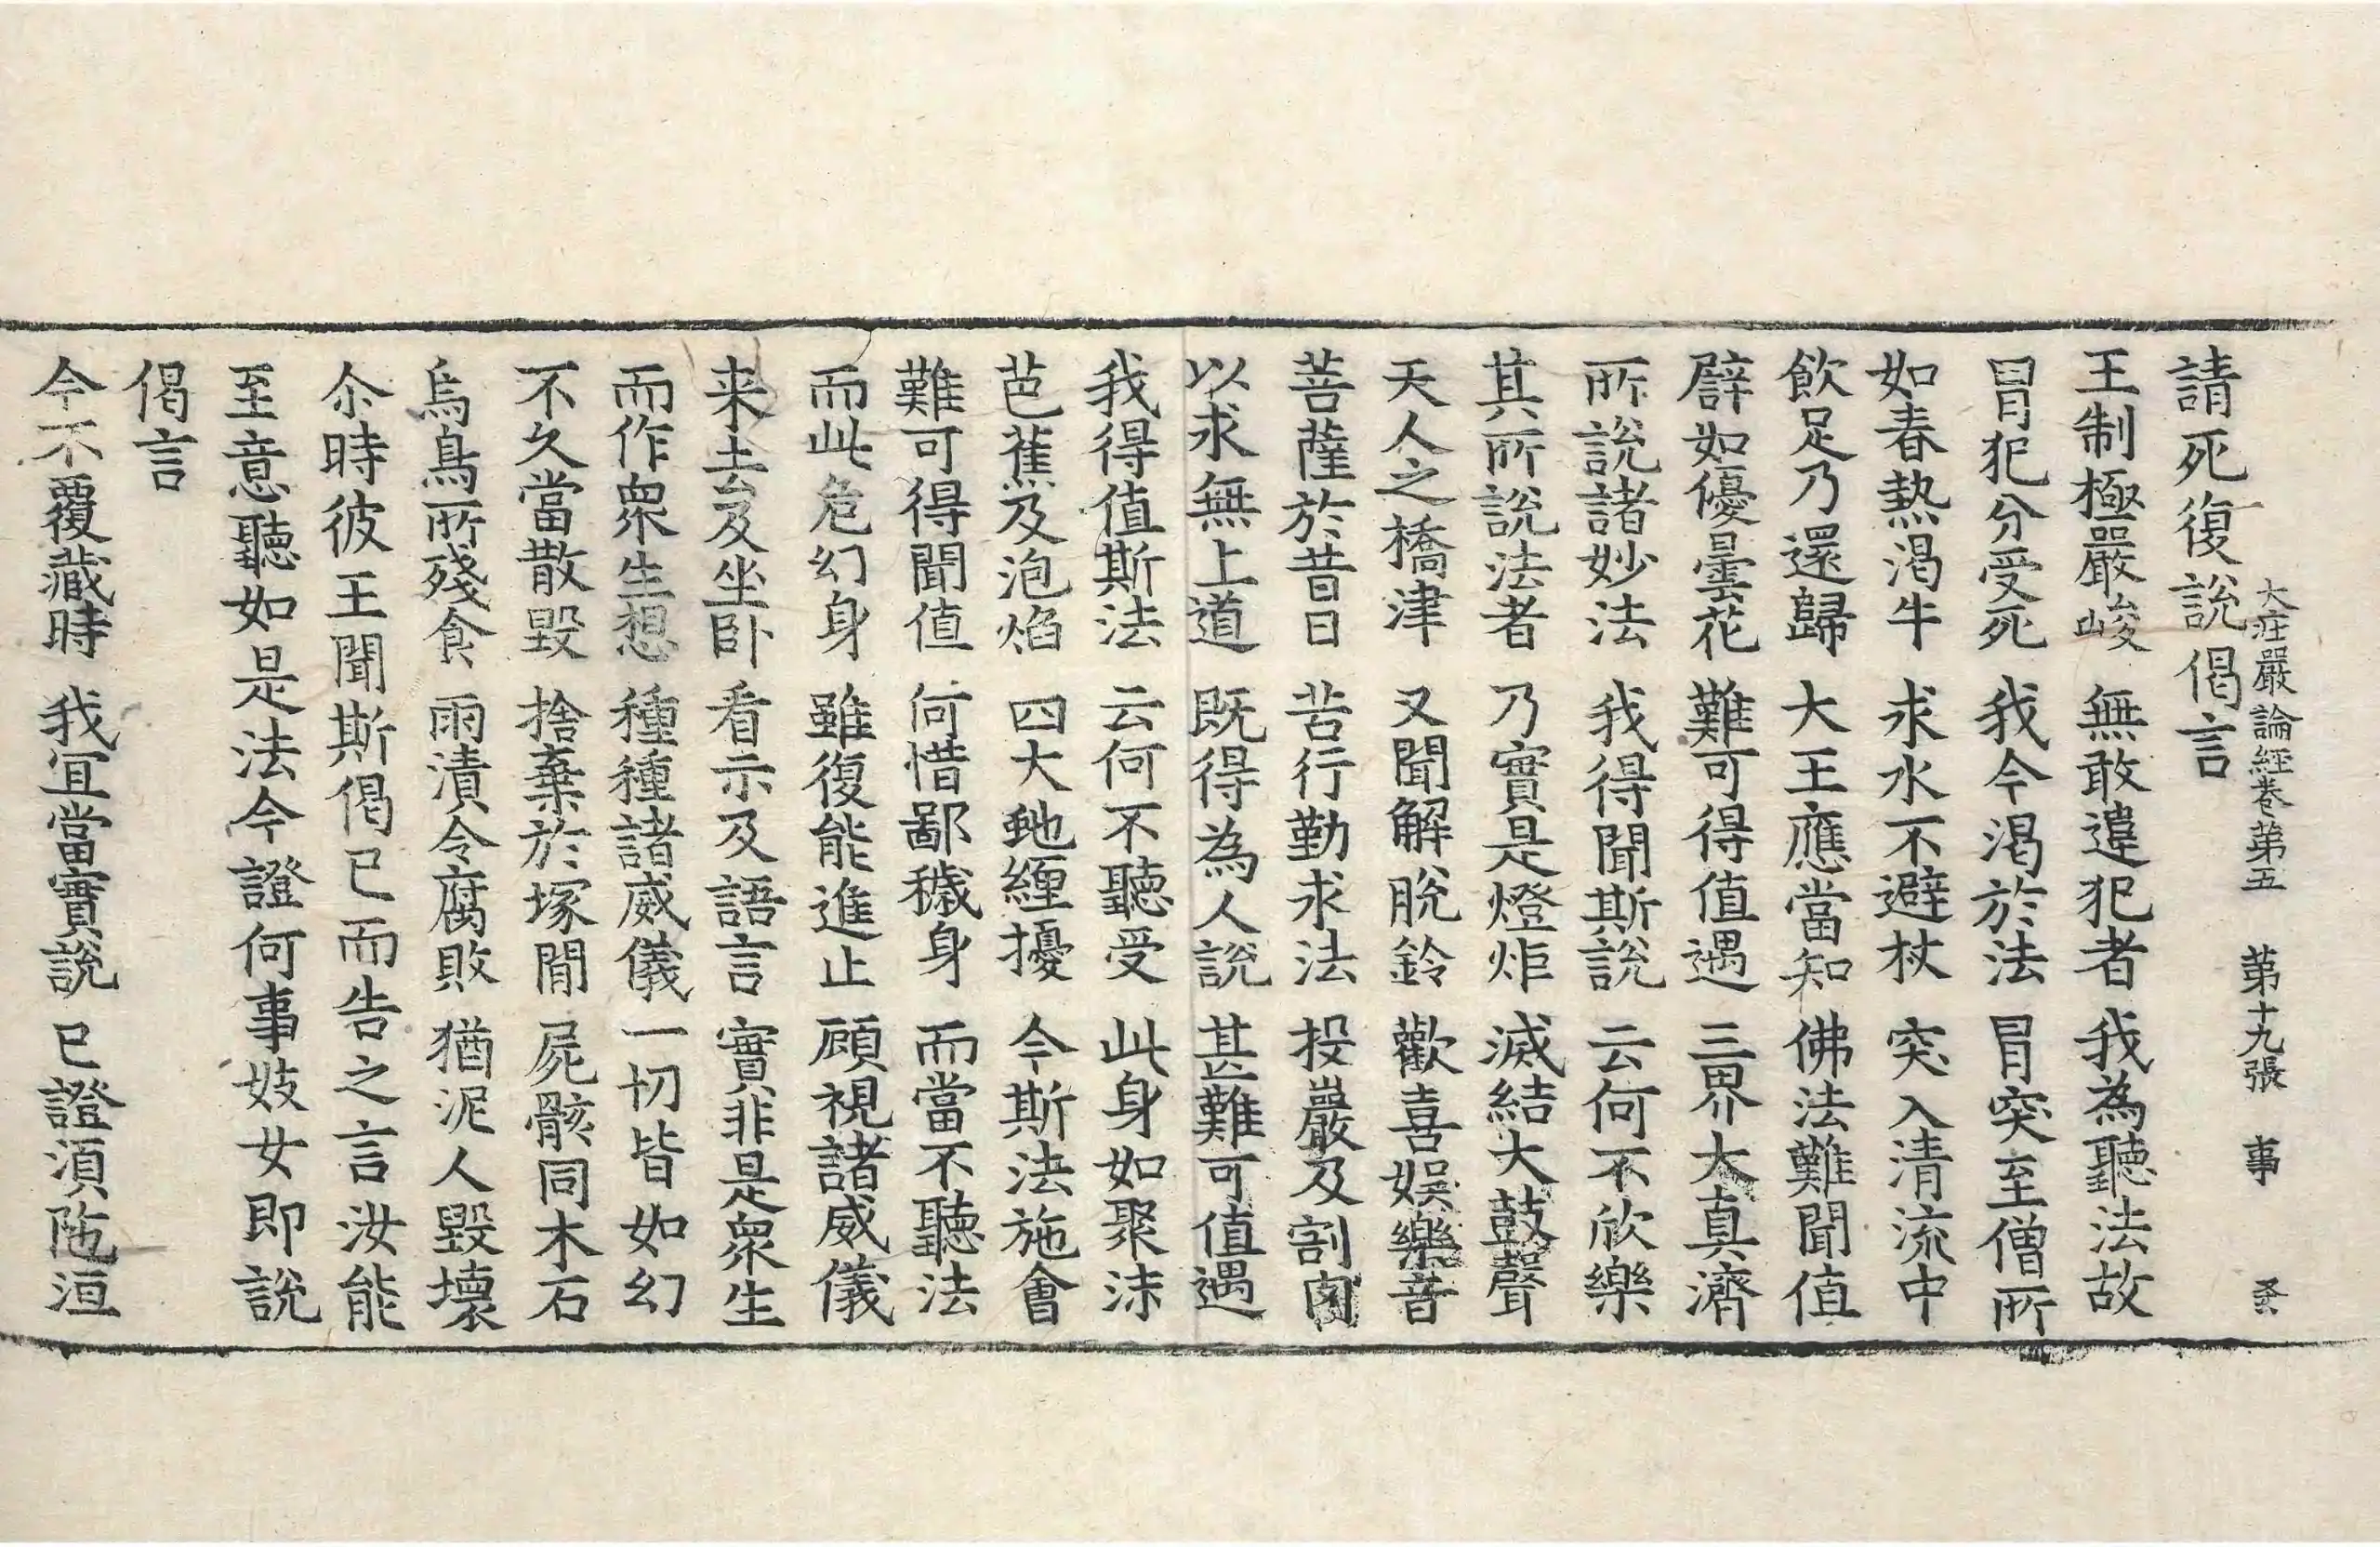 大莊嚴論經卷第五 第十九張 事
請死復說偈言
王制極嚴峻 無敢違犯者 我為聽法故
冒犯分受死 我今渴於法 冒突至僧所
如春熱渴牛 求水不避杖 突入清流中
飲足乃還歸 大王應當知 佛法難聞值
譬如優曇花 難可得值遇 三界大真濟
所說諸妙法 我得聞斯說 云何不欣樂
其所說法者 乃實是燈炬 滅結大鼓聲
天人之橋津 又聞解脫鈴 歡喜娛樂音
菩薩於昔日 苦行勤求法 投巖及割肉
以求無上道 既得為人說 甚難可值遇
我得值斯法 云何不聽受 此身如聚沫
芭蕉及泡焰 四大虵纏擾 今斯法施會
難可得聞值 何惜鄙穢身 而當不聽法
而此危幻身 雖復能進止 顧視諸威儀
来去及坐卧 看示及語言 實非是衆生
而作衆生想 種種諸威儀 一切皆如幻
不久當散毀 捨棄於塚間 屍骸同木石
烏鳥所殘食 雨漬令腐敗 猶泥人毀壞
尒時彼王聞斯偈已而告之言汝能
至意聽如是法今證何事妓女即說
偈言
今不覆藏時 我冝當實說 已證須陁洹